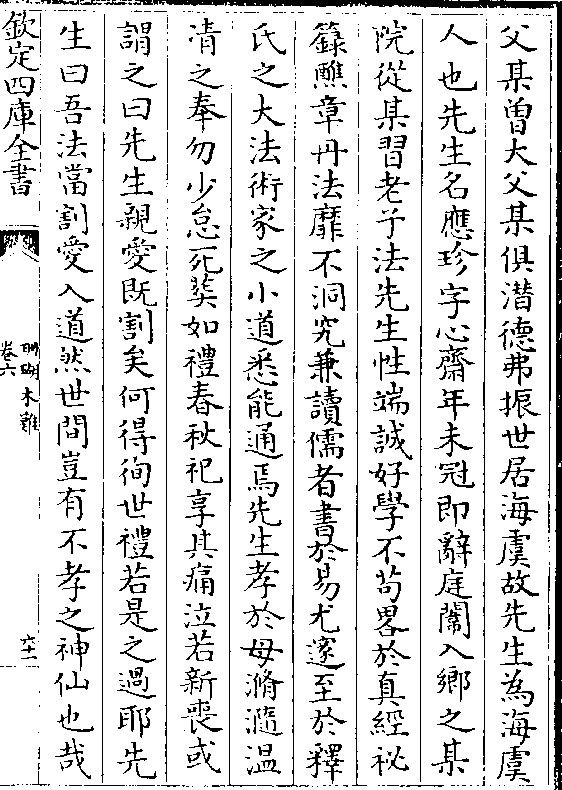 父某曽大父某俱潜德弗振世居海虞故先生為海虞
人也先生名應珍字心齋年未冠即辭庭闈入鄉之某
院從某習老子法先生性端誠好學不茍畧於真經祕
籙醮章丹法靡不洞究兼讀儒者書於易尤邃至於釋
氏之大法術家之小道悉能通焉先生孝於母滫瀡温
清之奉勿少怠死葬如禮春秋祀享其痛泣若新喪或
謂之曰先生親愛既割矣何得徇世禮若是之過耶先
生曰吾法當割愛入道然世間豈有不孝之神仙也哉
欽定四庫全書
珊瑚木難
卷六
六十一